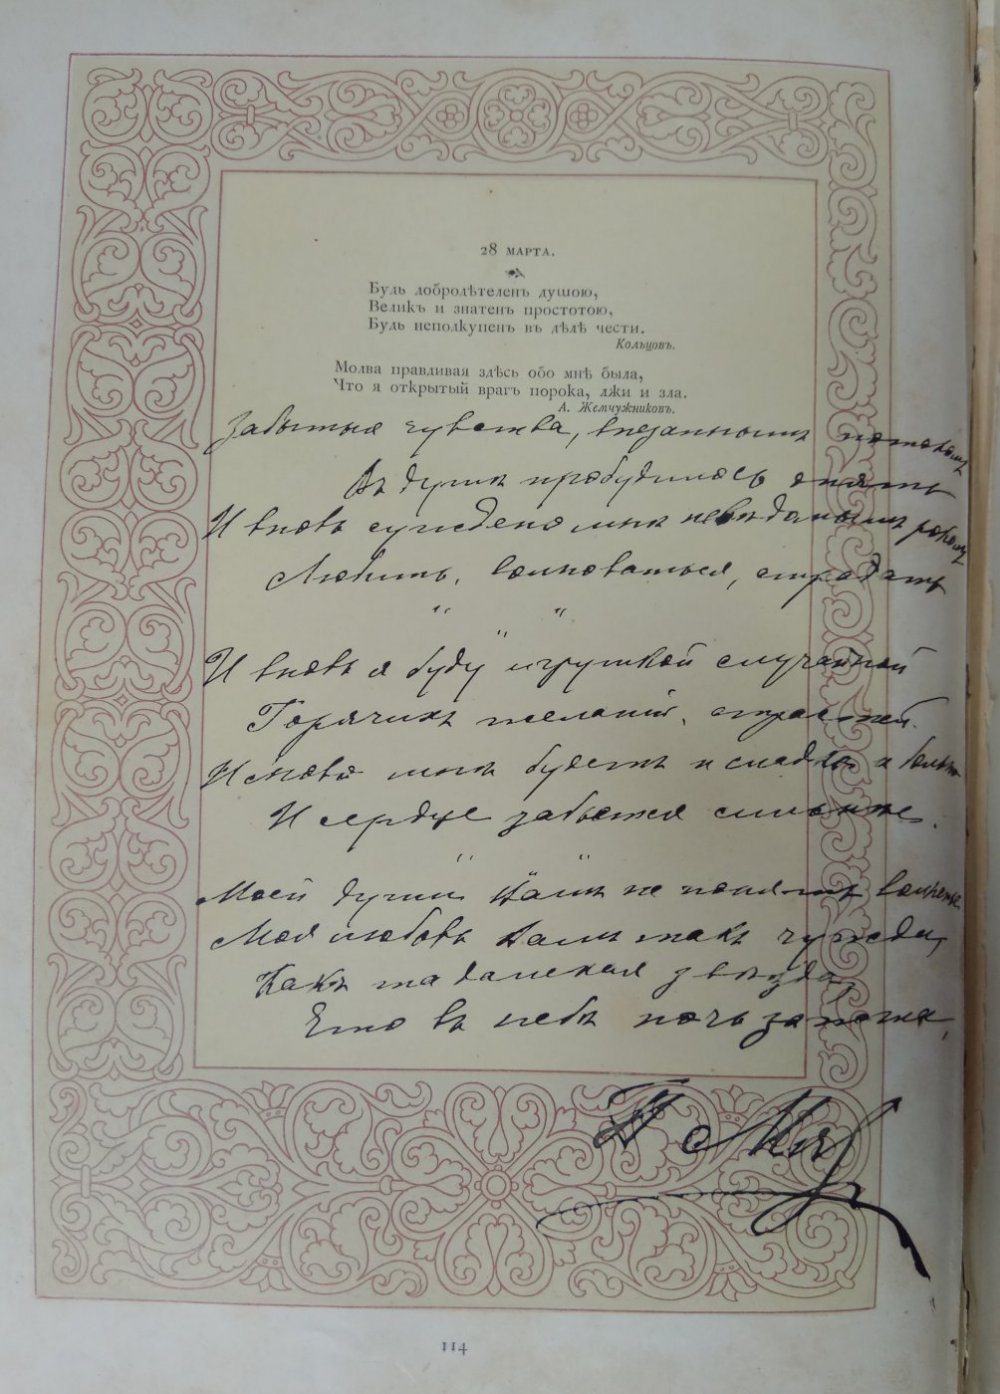 28 МАРТА.
Будь добродѣтеленъ душою,
Великъ и знатенъ простотою,
Будь неподкупенъ въ дѣлѣ чести.
Кольцовъ.
Молва правдивая здѣсь обо мнѣ была,
Что я открытый врагъ порока, лжи и зла.
А. Жемчужниковъ.
Забытыя чувства, внезапнымъ потокомъ
Въ душѣ пробудилось опять
И вновь суждено мнѣ невѣдомымъ рокомъ
Любить, волноваться, страдать
И вновь я буду игрушкой случайной
Горячихъ желаній, страстей.
И снова мнѣ будетъ и сладко и больно
И сердце забьется сильнѣе.
Моей души Вамъ не понять волненье
Моя любовь Вамъ такъ чужда,
Какъ та далекая звѣзда,
Что въ небѣ ночь зажгла,
114